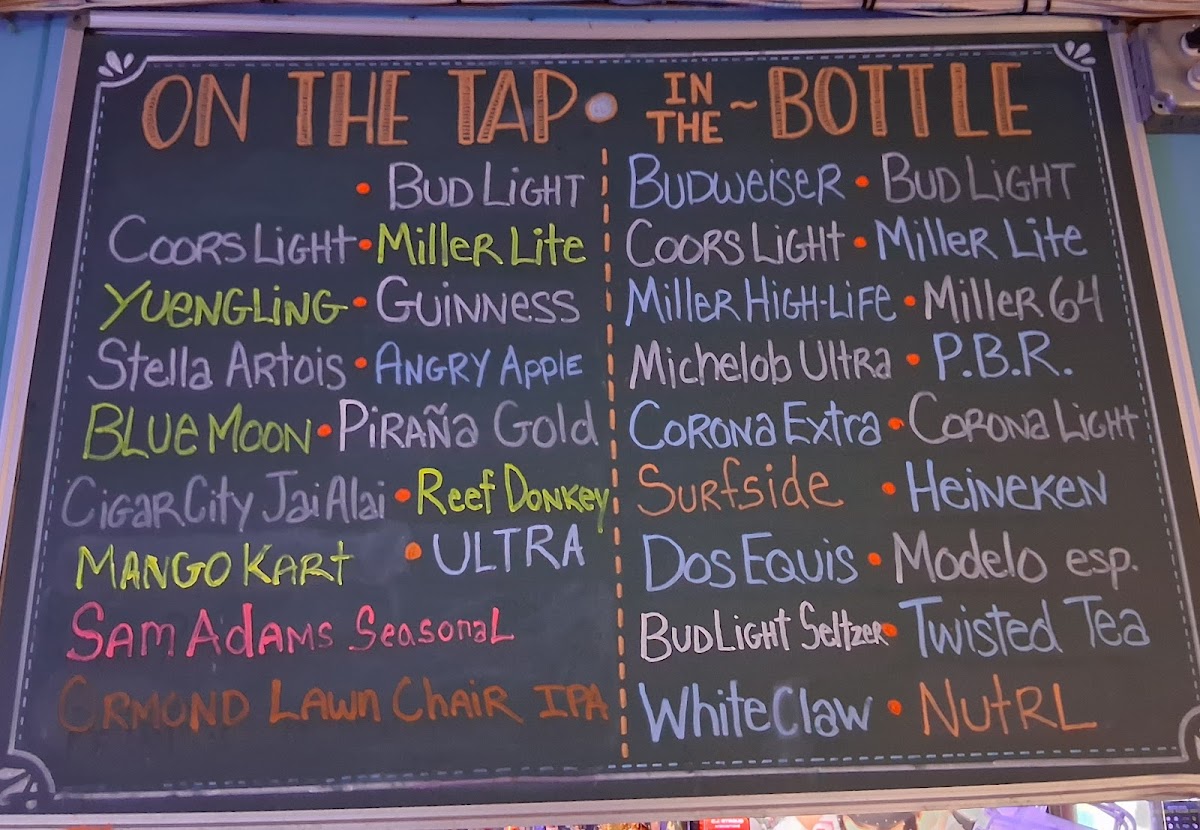 ON THE TAP • IN THE ~ BOTTLE
• BUD LIGHT
COORS LIGHT • MILLER LITE
YUENGLING • GUINNESS
Stella ARTOIS • ANGRY APPLE
BLUE MOON • PiRAÑa Gold
CIGAR CITY Jai Alai • Reef DONKEY
MANGO KART • ULTRA
SAM AdAMS SeasonaL
ORMOND LAWN ChAIR IPA
BUDWEISER • BUD LIGHT
COORS LIGHT • MILLER LITE
MILLER HIGH-LIFE • MILLER 64
Michelob UltRA • P.B.R.
CORONA Extra • CORONA LIGHT
SURfside • HEINEKEN
DOS EQUIS • Modelo esp.
BUD LIGHT Seltzer • Twisted Tea
White Claw • NUtRL